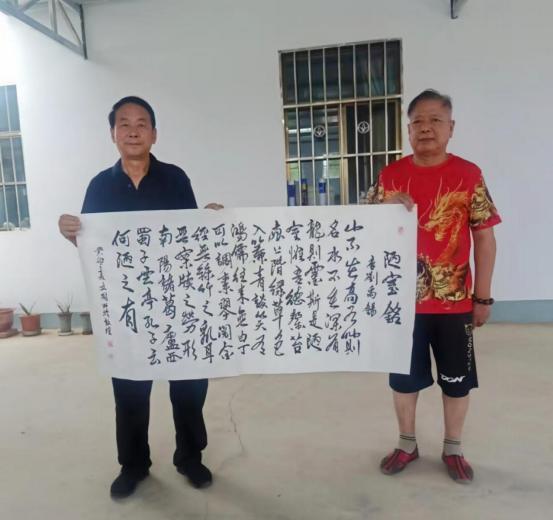 陋室銘
唐劉禹錫
山不在高有仙則
名水不在深有
龍則靈斯是陋
室惟吾德馨苔
痕上階綠草色
入簾青談笑有
鴻儒往來無白丁
可以調素琴閱金
經無絲竹之亂耳
無案牘之勞形
南陽諸葛廬西
蜀子雲亭孔子云
何陋之有
癸卯之夏